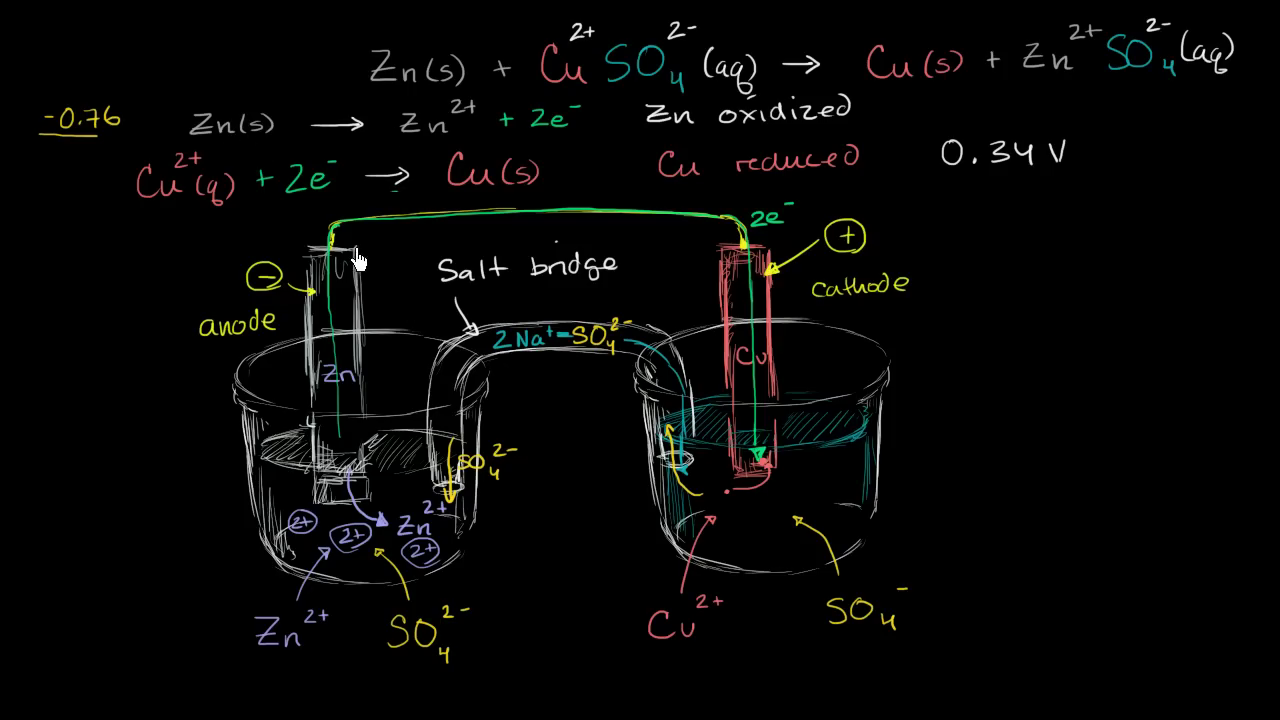 Zn(s) + Cu²⁺SO₄²⁻(aq) → Cu(s) + Zn²⁺SO₄²⁻(aq)
-0.76 Zn(s) → Zn²⁺ + 2e⁻ Zn oxidized
Cu²⁺(q) + 2e⁻ → Cu(s) Cu reduced 0.34 V
2e⁻
+
Salt bridge
-
cathode
anode
2Na⁺ SO₄²⁻
Cu
Zn
SO₄²⁻
Zn²⁺
2+ 2+ 2+
Zn²⁺ SO₄²⁻ Cu²⁺ SO₄⁻